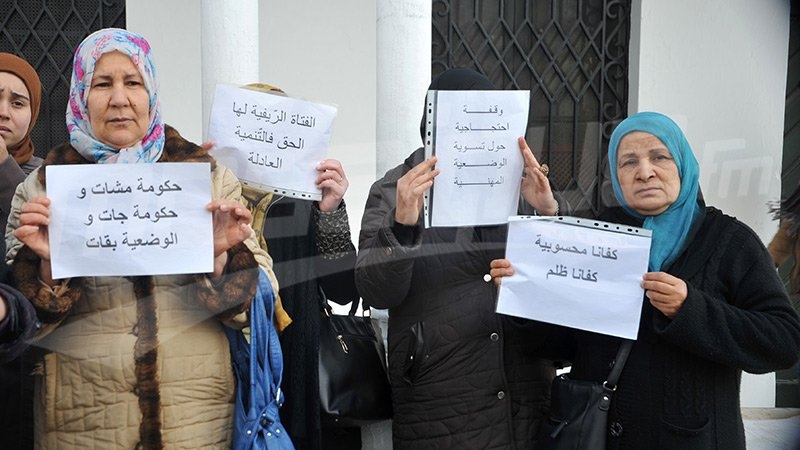 حكومة مشات و
حكومة جات و
الوضعية بقات
الفتاة الرّيفية لها
الحق فالتّنمية
العادلة
وقفة
احتجاجية
حول تسوية
الوضعية
المهنية
كفانا محسوبية
كفانا ظلم